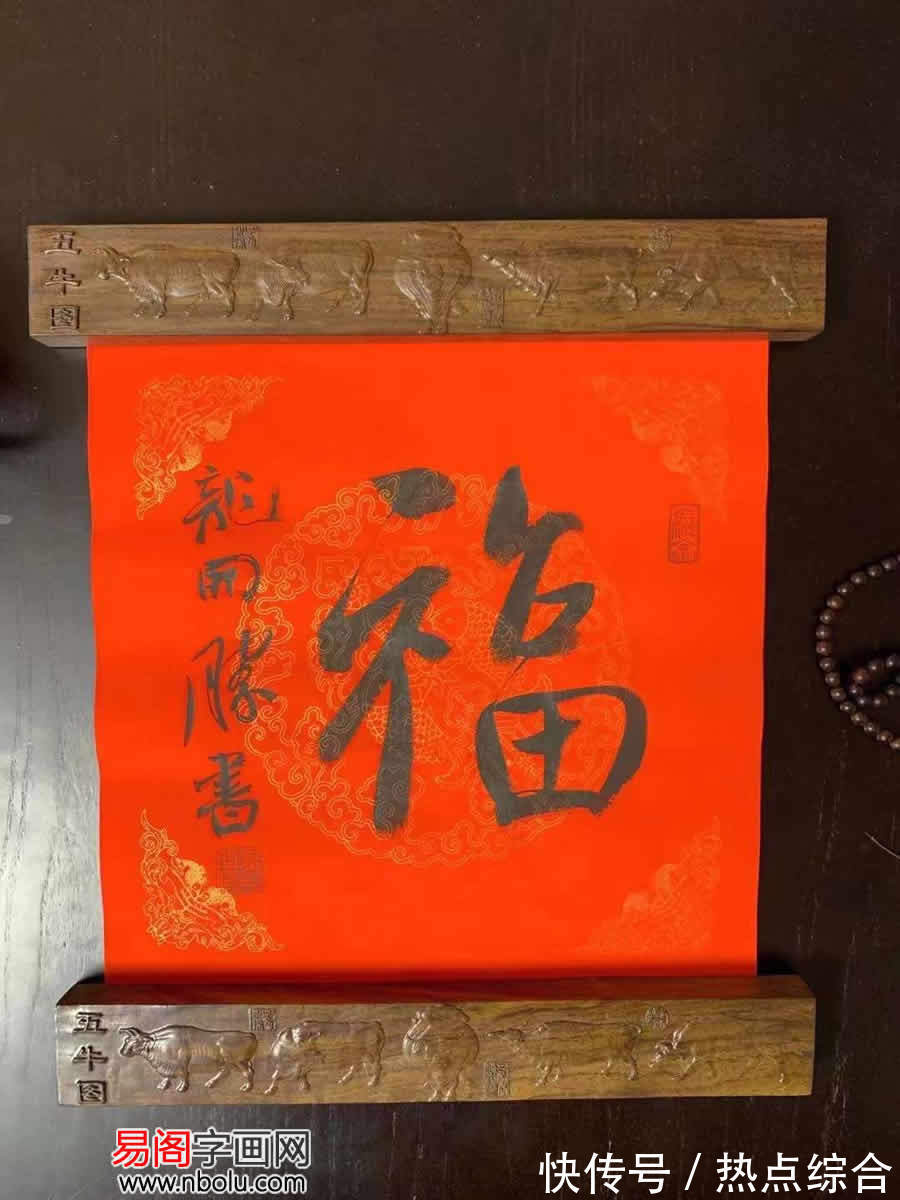 五牛图
福
龍開勝書
五牛图
易阁字画网
www.nbolu.com
快传号 / 热点综合